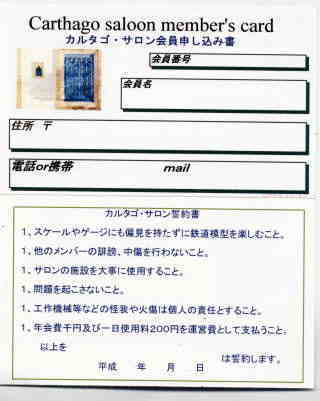 Carthago saloon member's card
カルタゴ・サロン会員申し込み書
会員番号
会員名
住所　〒
電話or携帯　mail
カルタゴ・サロン誓約書
1、スケールやゲージにも偏見を持たずに鉄道模型を楽しむこと。
1、他のメンバーの誹謗、中傷を行わないこと。
1、サロンの施設を大事に使用すること。
1、問題を起こさないこと。
1、工作機械等などの怪我や火傷は個人の責任とすること。
1、年会費千円及び一日使用料200円を運営費として支払うこと。
以上を
は誓約します。
平成　年　月　日